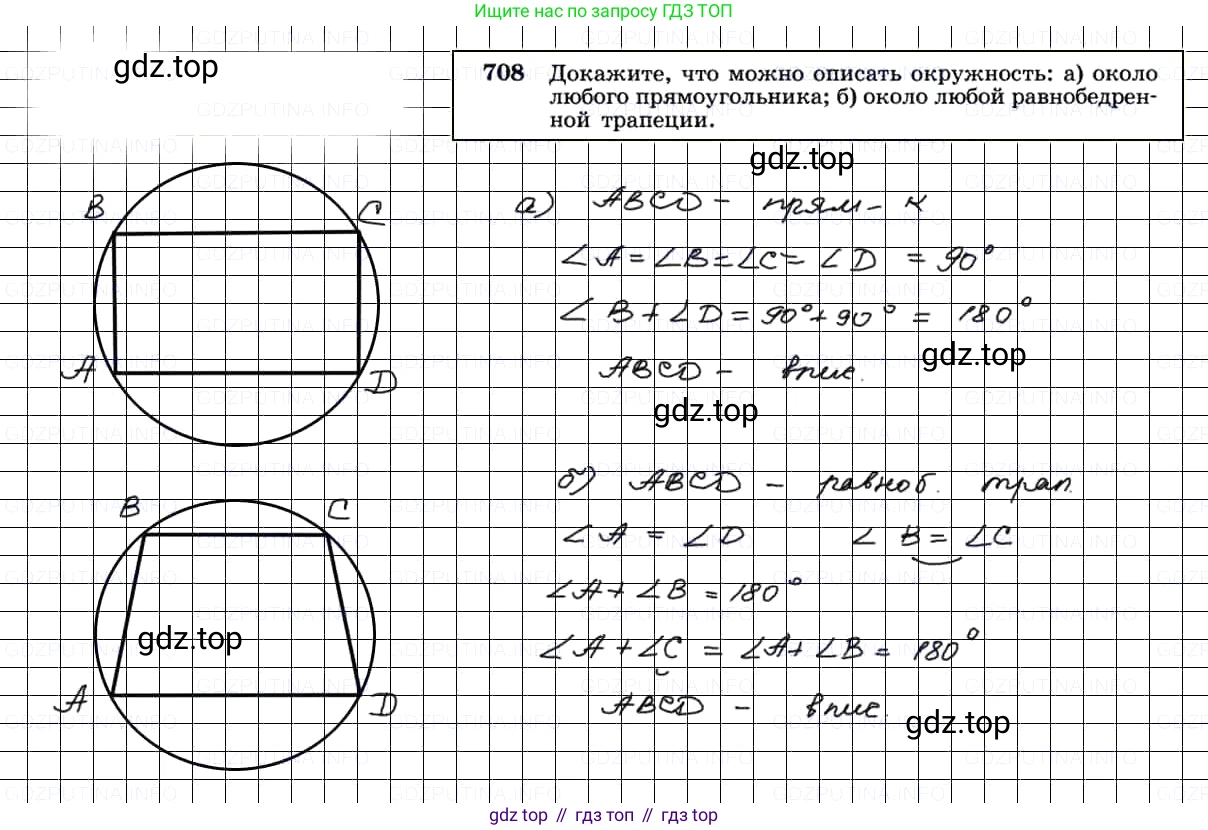 Ищите нас по запросу ГДЗ ТОП
gdz.top
708 Докажите, что можно описать окружность: а) около
любого прямоугольника; б) около любой равнобедрен-
ной трапеции.
gdz.top
B C
A D
а) ABCD - прям-к
∠A = ∠B = ∠C = ∠D = 90°
∠B + ∠D = 90° + 90° = 180°
gdz.top
ABCD - впис.
gdz.top
б) ABCD - равноб. трап.
B C
∠A = ∠D ∠B = ∠C
∠A + ∠B = 180°
gdz.top
∠A + ∠C = ∠A + ∠B = 180°
A D
ABCD - впис.
gdz.top
GDZPUTINA.INFO
gdz top // гдз топ // gdz top